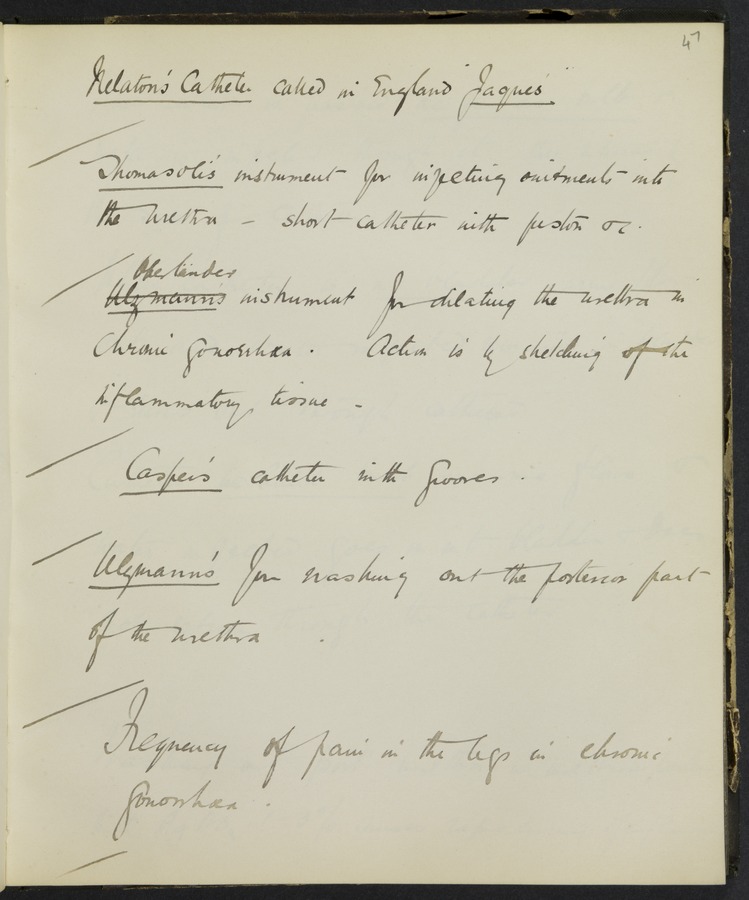 47
Nelaton's Catheter called in England "Jaques"
Thomasoli's instrument for injecting ointments into
the urethra – short catheter with piston &c.
Oberländer
Ulzmann's instrument for dilating the urethra in
Chronic Gonorrhœa. Action is by stretching of the
inflammatory tissue –
Casper's catheter with Grooves.
Ulzmann's for washing out the posterior part
of the urethra.
Frequency of pain in the legs in chronic
gonorrhœa.